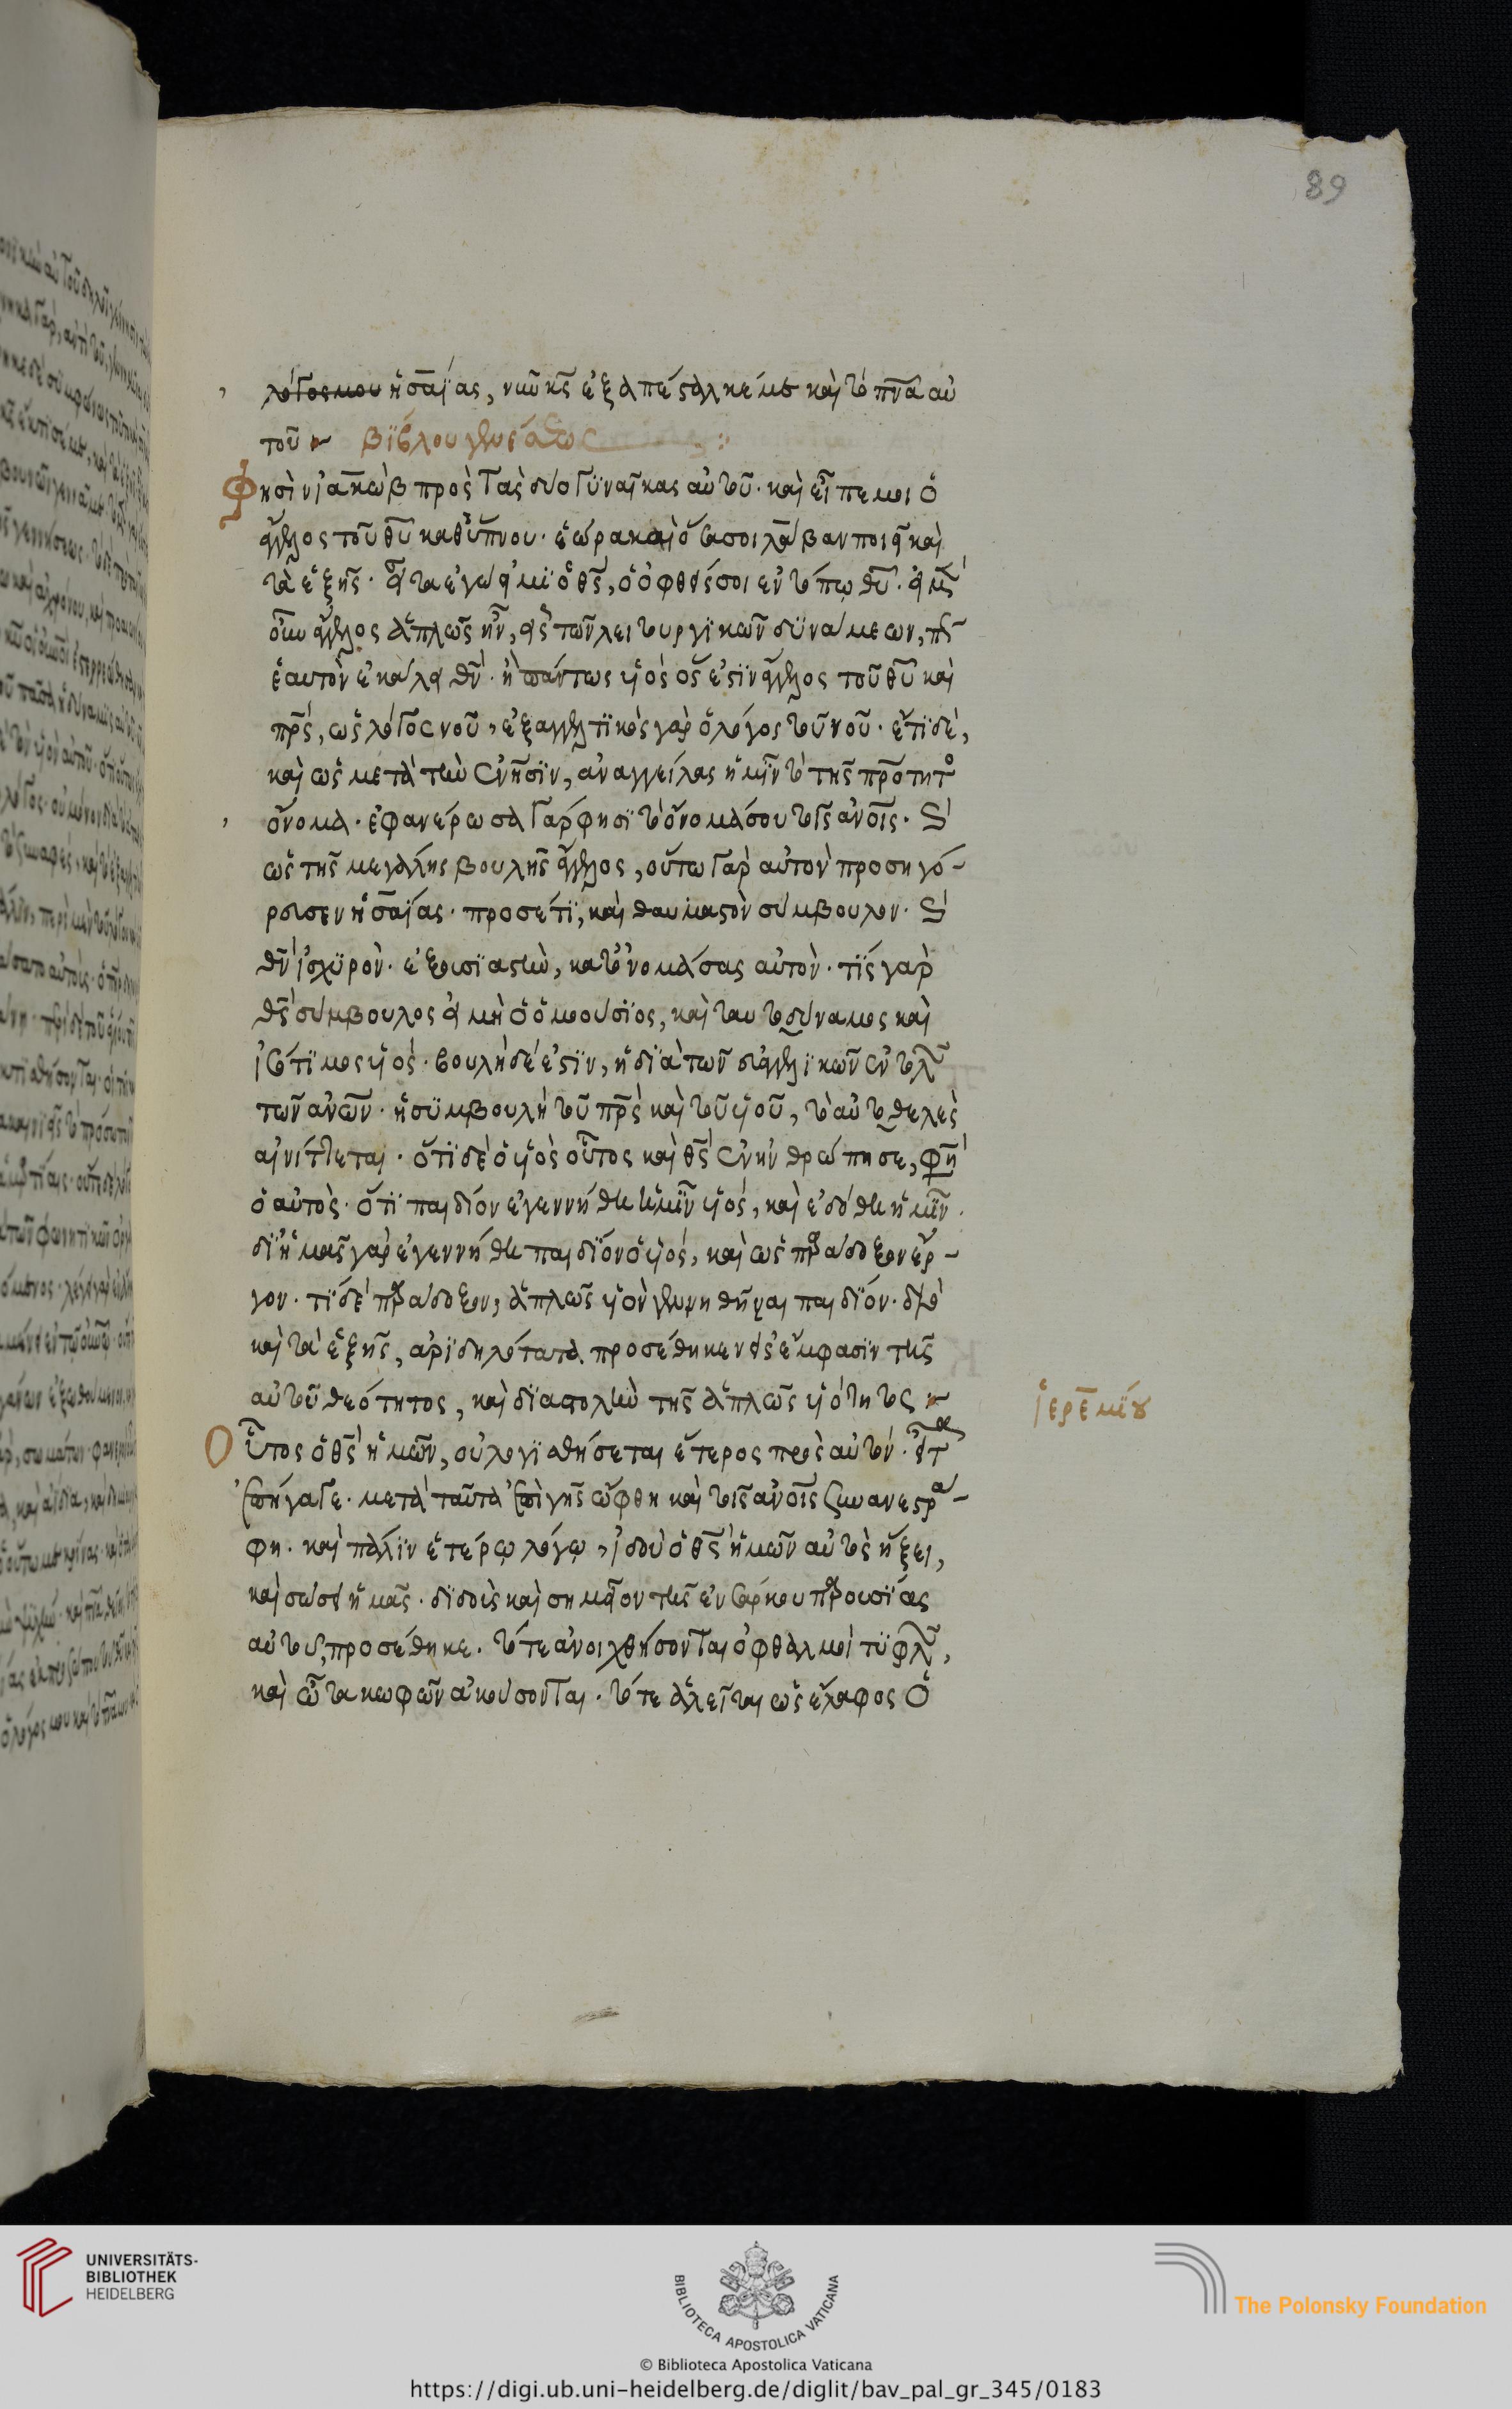 89
λόγος μου ἡσαΐας, νῦν κς ἐξαπέσταλκέ με καὶ τὸ πνα αὐ
τοῦ βίβλου γενέσεως
Φησὶν ἰακὼβ πρὸς τὰς δύο γυναῖκας αὐτοῦ. καὶ εἶπε μοι ὁ
ἄγγελος τοῦ θυ καθ' ὕπνου. ἑώρακα ὅσα σοι λάβαν ποιεῖ καὶ
τὰ ἑξῆς. εἶτα ἐγώ εἰμι ὁ θς, ὁ ὀφθείς σοι ἐν τόπῳ θυ.
ἄγγελος ἁπλῶς ἦν, εἷς τῶν λειτουργικῶν δυνάμεων, πῶς
ἑαυτὸν ἐκάλει θν. ἢ πάντως υἱὸς ὅς ἐστιν ἄγγελος τοῦ θυ καὶ
πρς, ὡς λόγος νοῦ, ἐξαγγελτικὸς γὰρ ὁ λόγος τοῦ νοῦ. ἔτι δὲ,
καὶ ὡς μετὰ τὴν κένωσιν, ἀναγγείλας ἡμῖν τὸ τῆς πρότητος
ὄνομα. ἐφανέρωσα γάρ φησι τὸ ὄνομά σου τοῖς ἀνοις. καὶ
ὡς τῆς μεγάλης βουλῆς ἄγγελος, οὕτω γὰρ αὐτὸν προσηγό-
ρευσεν ἡσαΐας. προσέτι, καὶ θαυμαστὸν σύμβουλον. καὶ
θν ἰσχυρὸν. ἐξουσιαστὴν, κατονομάσας αὐτὸν. τίς γὰρ
θς σύμβουλος εἰ μὴ ὁ ὁμοούσιος, καὶ ταυτοδύναμος καὶ
ἰσότιμος υἱὸς. βουλὴ δέ ἐστιν, ἡ διὰ τῶν
τῶν ἀνων. ἡ συμβουλὴ τοῦ πρς καὶ τοῦ υἱοῦ, τὸ αὐτοθελὲς
αἰνίττεται. ὅτι δὲ ὁ υἱὸς οὗτος καὶ θς ἐνηνθρώπησε, φησὶ
ὁ αὐτὸς. ὅτι παιδίον ἐγεννήθη ἡμῖν υἱὸς, καὶ ἐδόθη ἡμῖν.
δι' ἡμᾶς γὰρ ἐγεννήθη παιδίον ὁ υἱὸς, καὶ ὡς παράδοξον ἔρ-
γον. τί δὲ παράδοξον, ἁπλῶς υἱὸν γεννηθῆναι παιδίον. διὸ
καὶ τὰ ἑξῆς, ἀριδηλότατα προσέθηκεν εἰς ἔμφασιν τῆς
αὐτοῦ θεότητος, καὶ διαστολὴν τῆς ἁπλῶς υἱότητος
ἱερεμίου
Οὗτος ὁ θς ἡμῶν, οὐ λογισθήσεται ἕτερος πρὸς αὐτόν. εἶτα
ἐπήγαγε. μετὰ ταῦτα ἐπὶ γῆς ὤφθη καὶ τοῖς ἀνοις συνανεστρά-
φη. καὶ πάλιν ἑτέρῳ λόγῳ, ἰδοὺ ὁ θς ἡμῶν αὐτὸς ἥξει,
καὶ σώσει ἡμᾶς. διδοὺς καὶ σημεῖον τῆς ἐνσάρκου παρουσίας
αὐτοῦ, προσέθηκε. τότε ἀνοιχθήσονται ὀφθαλμοὶ τυφλῶν,
καὶ ὦτα κωφῶν ἀκούσονται. τότε ἁλεῖται ὡς ἔλαφος ὁ
UNIVERSITÄTS-
BIBLIOTHEK
HEIDELBERG
BIBLIOTECA APOSTOLICA VATICANA
The Polonsky Foundation
© Biblioteca Apostolica Vaticana
https://digi.ub.uni-heidelberg.de/diglit/bav_pal_gr_345/0183